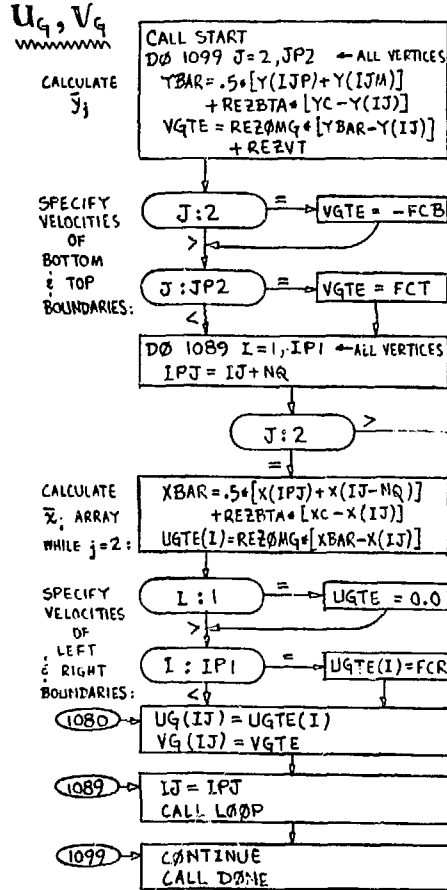 U_G, V_G
CALL START
DØ 1099 J=2,JP2 ←ALL VERTICES
YBAR=.5*[Y(IJP)+Y(IJM)]
+REZBTA*[YC-Y(IJ)]
VGTE=REZØMG*[YBAR-Y(IJ)]
+REZVT
CALCULATE
ȳ_j
SPECIFY
VELOCITIES
OF
BOTTOM
& TOP
BOUNDARIES:
J:2
=
VGTE = -FCB
>
J:JP2
=
VGTE = FCT
<
DØ 1089 I=1,IP1 ←ALL VERTICES
IPJ = IJ+NQ
J:2
>
=
CALCULATE
x̄_i ARRAY
WHILE j=2:
XBAR=.5*[X(IPJ)+X(IJ-NQ)]
+REZBTA*[XC-X(IJ)]
UGTE(I)=REZØMG*[XBAR-X(IJ)]
SPECIFY
VELOCITIES
OF
LEFT
& RIGHT
BOUNDARIES:
I:1
=
UGTE = 0.0
>
I:IP1
=
UGTE(I)=FCR
<
1080
UG(IJ)=UGTE(I)
VG(IJ)=VGTE
1089
IJ=IPJ
CALL LØØP
1099
CØNTINUE
CALL DØNE